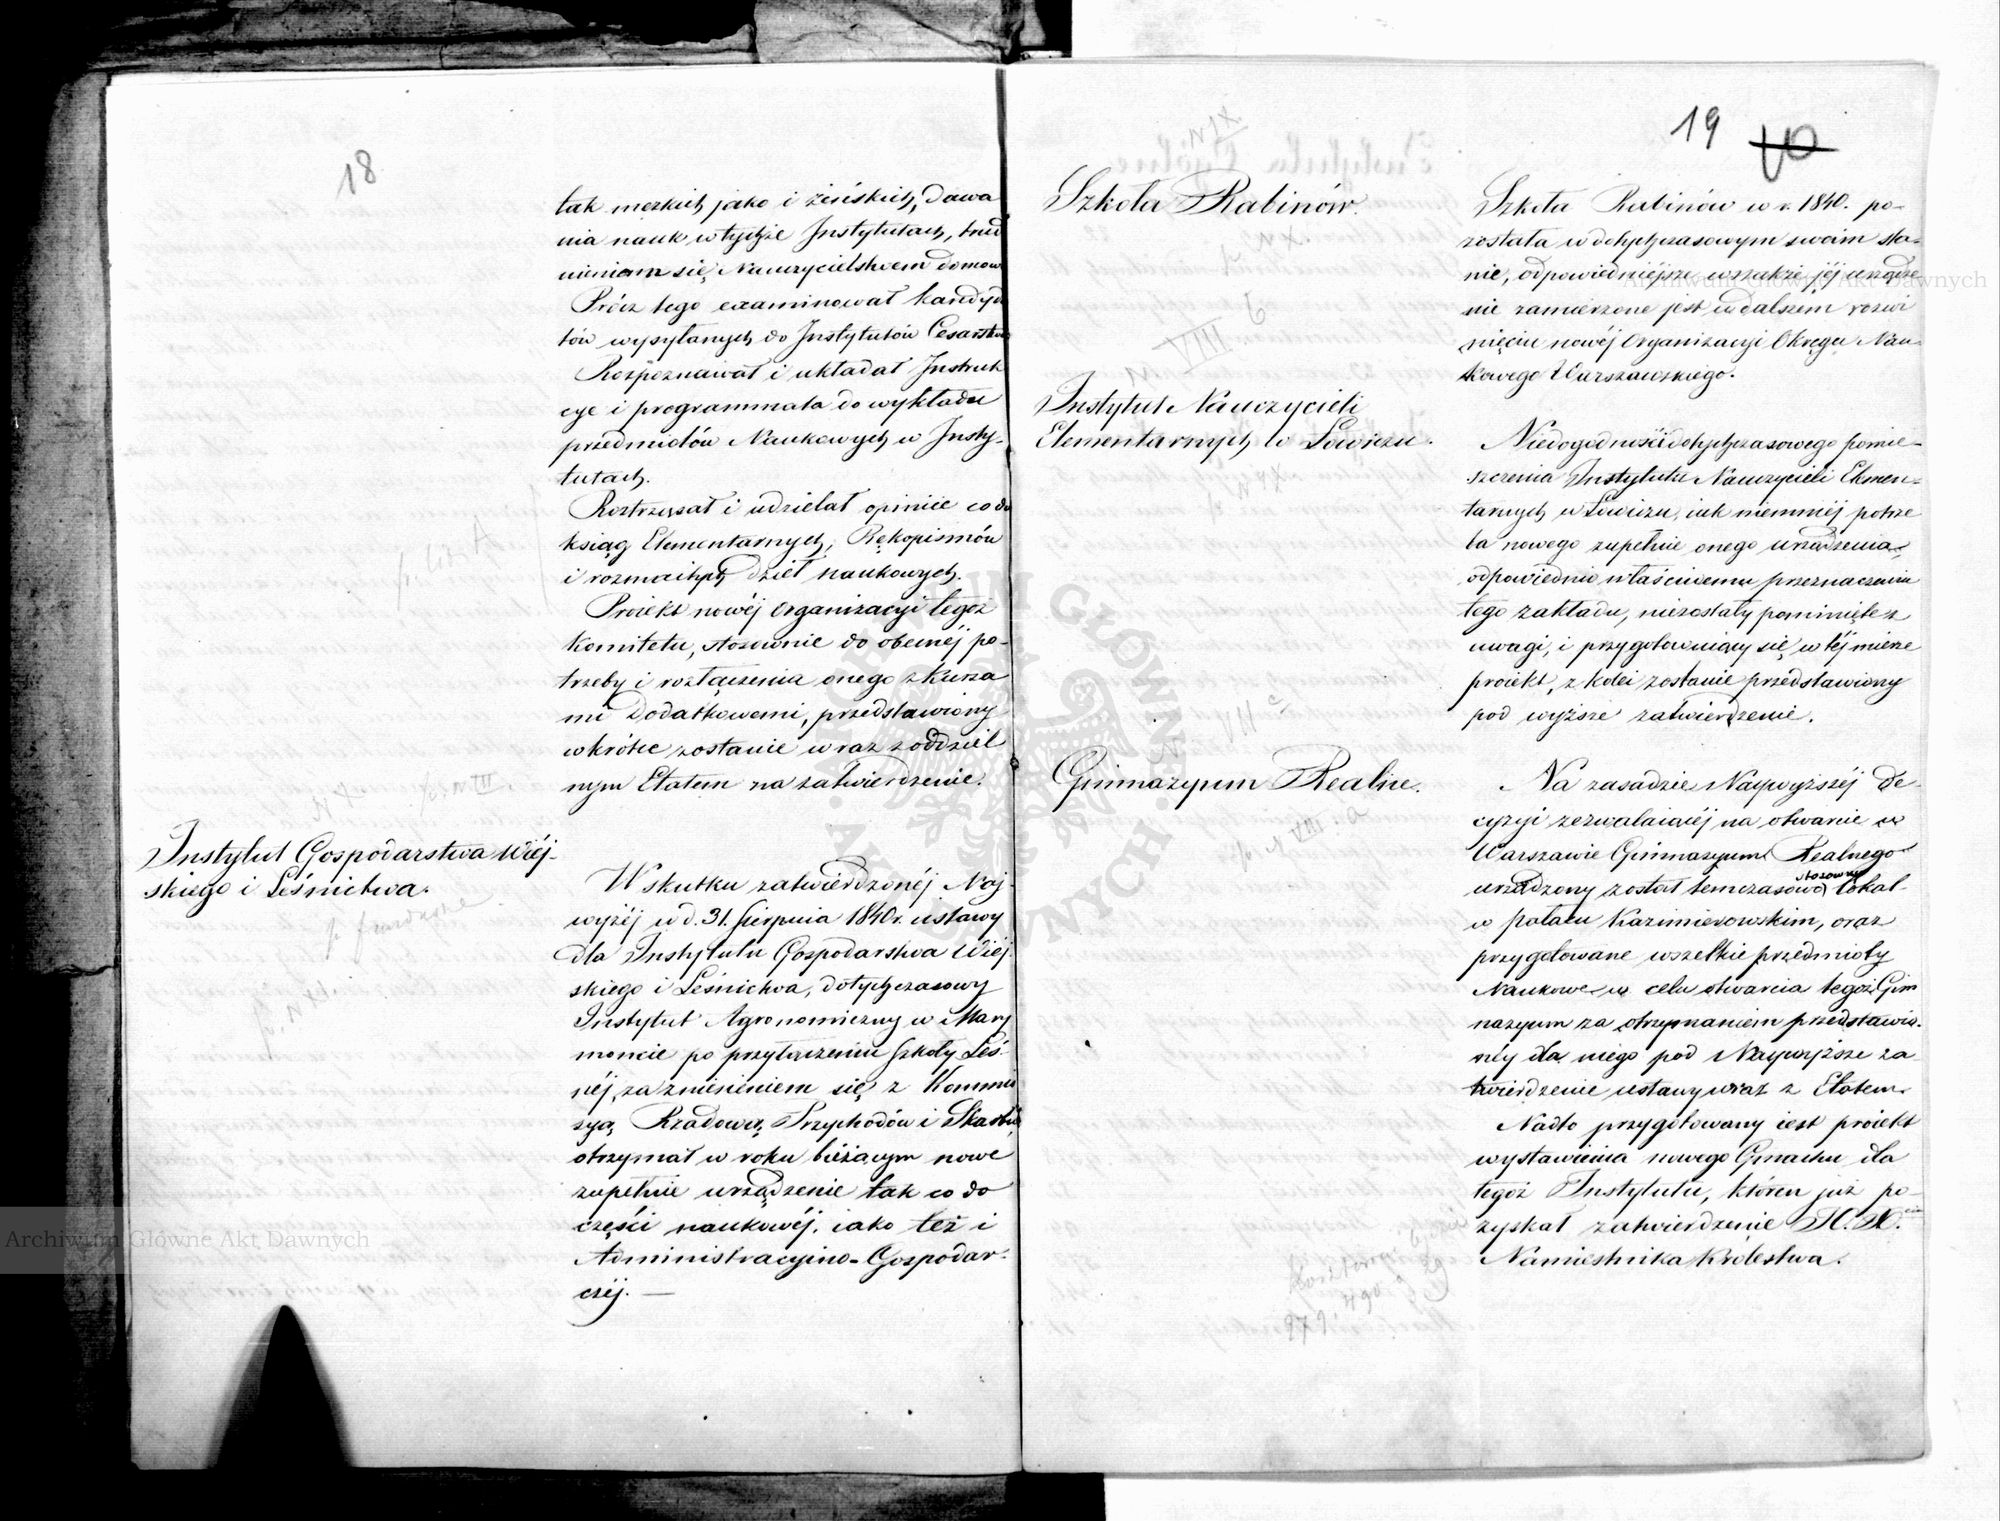 18
tak męzkich jako i żeńskich, dawa
nia nauk w tychże Instytutach, trud
nieniem się Nauczycielstwem domow
Prócz tego examinował kandyda
tów wysyłanych do Instytutów Cesarstwa
Rozpoznawał i układał Instruk
cye i programmata do wykładu
przedmiotów Naukowych w Insty-
tutach.
Roztrząsał i udzielał opiniie co do
ksiąg Elementarnych, Rękopismów
i rozmaitych dzieł naukowych.
Proiekt nowéj Organizacyi tegoż
Komitetu, stosownie do obecnéj po-
trzeby i rozłączenia onego z Kursa
mi Dodatkowemi, przedstawiony
wkrótce zostanie wraz z oddziel
nym Etatem na zatwierdzenie.
Instytut Gospodarstwa Wiéj-
skiego i Leśnictwa.
W skutku zatwierdzonéj Naj-
wyżéj w d. 31. Sierpnia 1840 r. ustawy
dla Instytutu Gospodarstwa Wiej
skiego i Leśnictwa, dotychczasowy
Instytut Agronomiczny w Mary
moncie po przyłączeniu Szkoły Leś-
néj, za zniesieniem się z Kommis
syą Rządową Przychodów i Skarbu,
otrzymał w roku bieżącym nowe
zupełnie urządzenie tak co do
części naukowéj, iako też i
Administracyino-Gospodar-
czéj. —
19
Szkoła Rabinów.
Szkoła Rabinów w r. 1840. po-
została w dotychczasowym swoim sta-
nie, odpowiedniejsze wszakże jéj urządze
nie zamierzone jest w dalszém rozwi
nięciu nowéj Organizacyi Okręgu Nau-
kowego Warszawskiego.
Instytut Nauczycieli
Elementarnych w Łowiczu.
Niedogodności dotychczasowego pomie-
szczenia Instytutu Nauczycieli Elemen-
tarnych w Łowiczu, iak niemniéj potrze
ba nowego zupełnie onego urządzenia,
odpowiednio właściwemu przeznaczeniu
tego zakładu, niezostały pominięte z
uwagi, i przygotowuiący się w téj mierze
proiekt, z kolei zostanie przedstawiony
pod wyższe zatwierdzenie.
Gimnazyum Realne.
Na zasadzie Naywyższéj De-
cyzyi zezwalaiącéj na otwarcie w
Warszawie Gimnazyum Realnego
urządzony został temczasowo stosowny lokal
w pałacu Kazimierowskim, oraz
przygotowane wszelkie przedmioty
Naukowe w celu otwarcia tegoż Gim
nazyum za otrzymaniem przedstawio-
néy dla niego pod Naywyższe za-
twierdzenie ustawy wraz z Etatem.
Nadto przygotowany iest proiekt
wystawienia nowego Gmachu dla
tegoż Instytutu, któren już po-
zyskał zatwierdzenie
Namiestnika Królestwa.
Archiwum Główne Akt Dawnych
Archiwum Główne Akt Dawnych